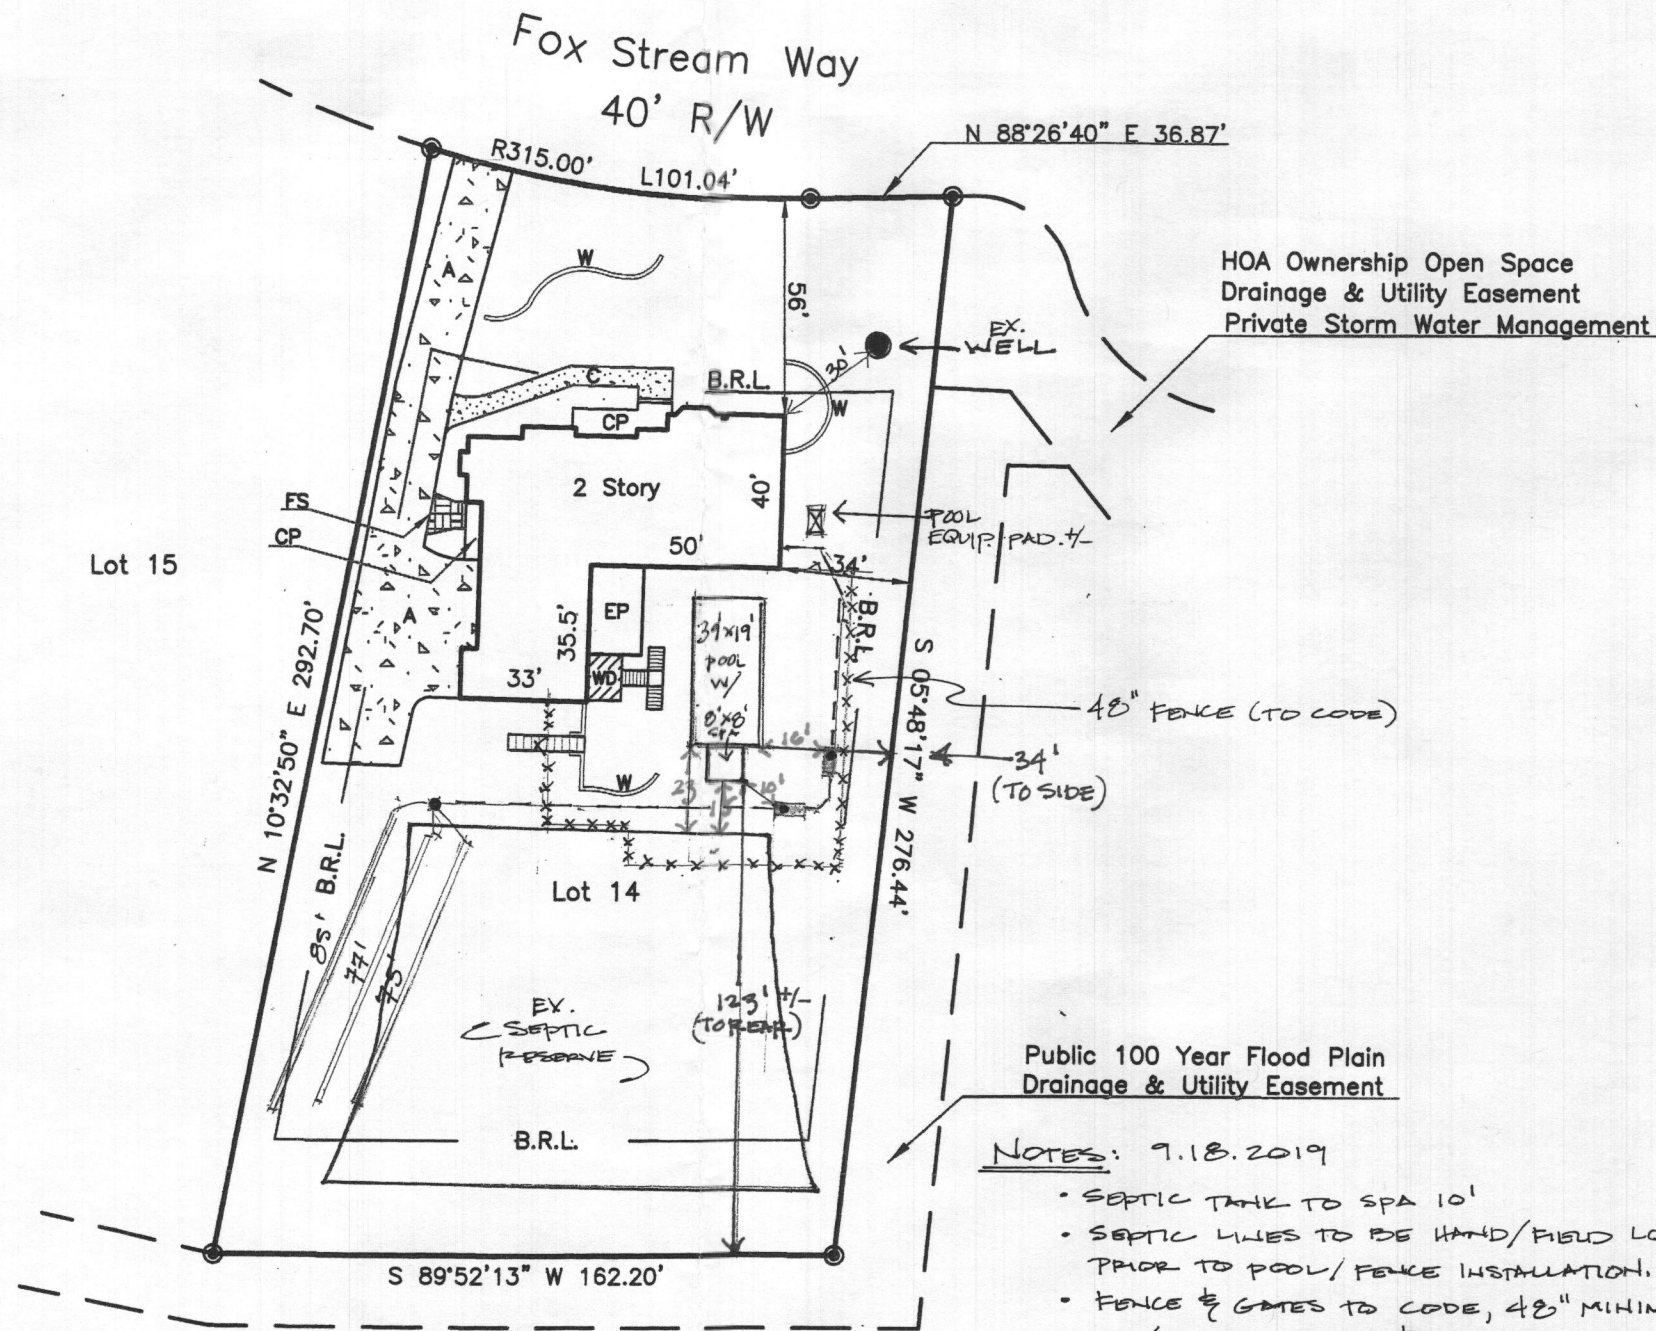 Fox Stream Way
40' R/W
N 88°26'40" E 36.87'
R315.00'
L101.04'
W
A
56'
HOA Ownership Open Space
Drainage & Utility Easement
Private Storm Water Management
EX.
WELL
30'
B.R.L.
W
C
CP
2 Story
40'
FS
CP
POOL
EQUIP. PAD. +/-
Lot 15
50'
34'
B.R.L.
EP
35.5'
A
39'x19'
POOL
W/
8'x8'
SPA
WD
33'
N 10°32'50" E 292.70'
S 05°48'17" W 276.44'
48" FENCE (TO CODE)
16'
34'
(TO SIDE)
W
23'
10'
B.R.L.
Lot 14
85'
77'
75'
EX.
SEPTIC
RESERVE
123' +/-
(TO REAR)
Public 100 Year Flood Plain
Drainage & Utility Easement
B.R.L.
NOTES: 9.18.2019
• SEPTIC TANK TO SPA 10'
• SEPTIC LINES TO BE HAND/FIELD LO
PRIOR TO POOL/FENCE INSTALLATION.
• FENCE & GATES TO CODE, 48" MINIM
S 89°52'13" W 162.20'